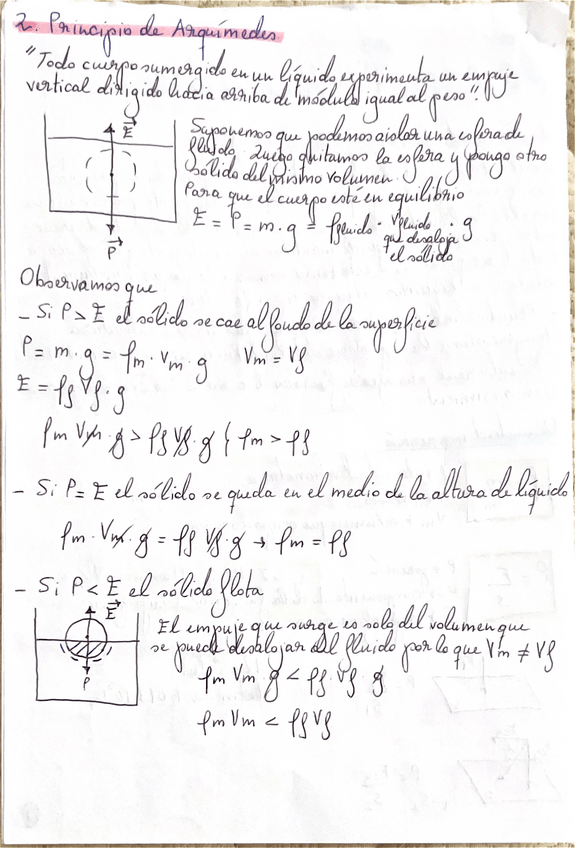 2. Principio de Arquímedes.
"Todo cuerpo sumergido en un líquido experimenta un empuje
vertical dirigido hacia arriba de módulo igual al peso".
E
P
Suponemos que podemos aislar una esfera de
fluido. Luego quitamos la esfera y pongo otro
sólido del mismo volumen.
Para que el cuerpo esté en equilibrio
E = P = m · g = ρfluido · Vfluido · g
que desaloja
el sólido
Observamos que
- Si P > E el sólido se cae al fondo de la superficie
P = m · g = ρm · Vm · g Vm = Vf
E = ρf Vf · g
ρm Vm · g > ρf Vf · g { ρm > ρf
- Si P = E el sólido se queda en el medio de la altura de líquido
ρm · Vm · g = ρf Vf · g → ρm = ρf
- Si P < E el sólido flota
E
P
El empuje que surge es solo del volumen que
se puede desalojar del fluido por lo que Vm ≠ Vf
ρm Vm g < ρf · Vf · g
ρm Vm < ρf Vf